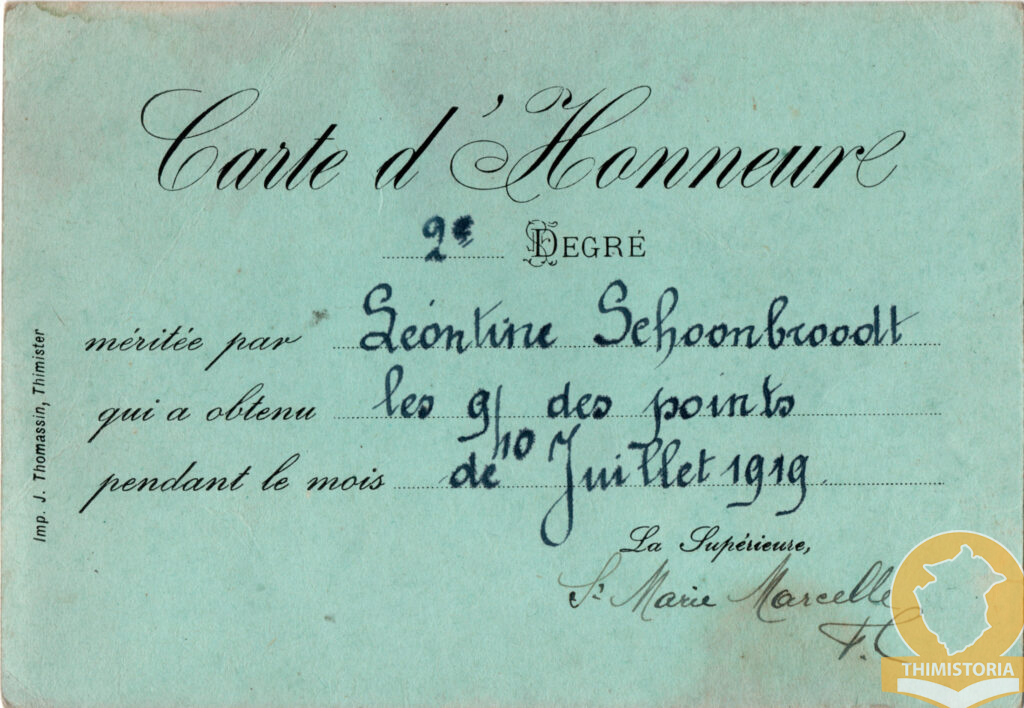 Carte d'Honneur
2e DEGRÉ
méritée par Léontine Schoonbroodt
qui a obtenu les 9/10 des points
pendant le mois de Juillet 1919
La Supérieure,
Sr Marie Marcelle
F.C
Imp. J. Thomassin, Thimister
THIMISTORIA